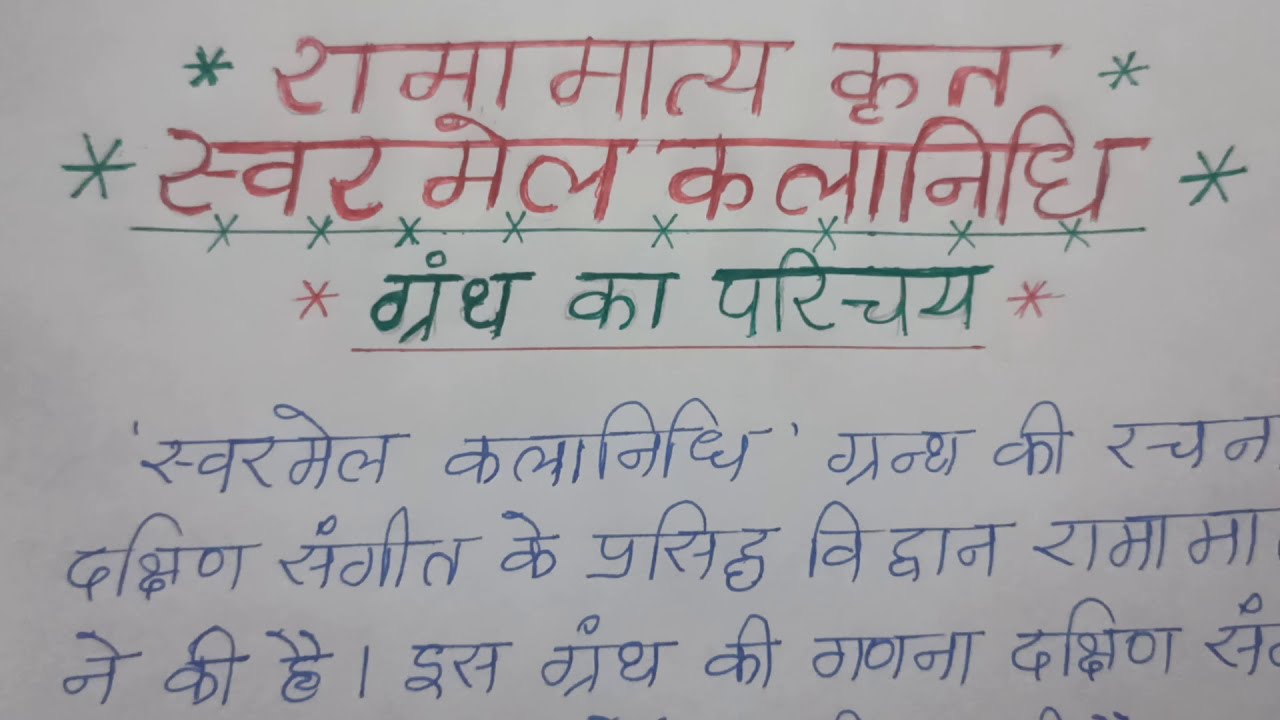 रामामात्य कृत
स्वरमेल कलानिधि
ग्रंथ का परिचय
'स्वरमेल कलानिधि' ग्रन्थ की रचन
दक्षिण संगीत के प्रसिद्ध विद्वान रामामा
ने की है। इस ग्रंथ की गणना दक्षिण सं